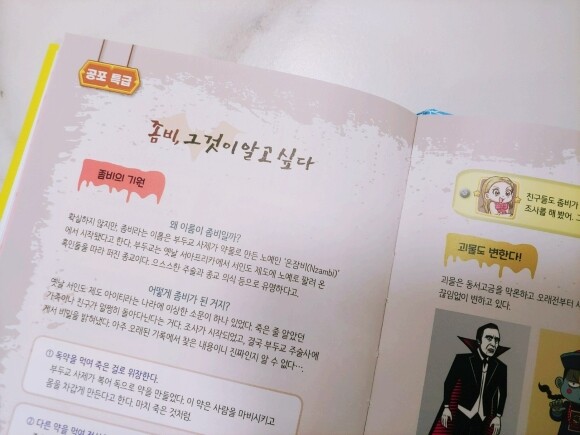 공포 특급
좀비, 그것이 알고 싶다
좀비의 기원
왜 이름이 좀비일까?
확실하지 않지만, 좀비라는 이름은 부두교 사제가 약물로 만든 노예인 '온잠비(Nzambi)'
에서 시작됐다고 한다. 부두교는 옛날 서아프리카에서 서인도 제도에 노예로 팔려 온
흑인들을 따라 퍼진 종교이다. 으스스한 주술과 종교 의식 등으로 유명하다고.
어떻게 좀비가 된 거지?
옛날 서인도 제도 아이티라는 나라에 이상한 소문이 하나 있었다. 죽은 줄 알았던
가족이나 친구가 멀쩡히 돌아다닌다는 거다. 조사가 시작되었고, 결국 부두교 주술사에
게서 비밀을 밝혀냈다. 아주 오래된 기록에서 찾은 내용이니 진짜인지 알 수 없다…
① 독약을 먹여 죽은 걸로 위장한다.
부두교 사제가 복어 독으로 약을 만들었다. 이 약은 사람을 마비시키고
몸을 차갑게 만든다고 한다. 마치 죽은 것처럼.
② 다른 약을 먹여
친구들도 좀비가
조사를 해 봤어. 그
괴물도 변한다!
괴물은 동서고금을 막론하고 오래전부터 사
끊임없이 변하고 있다.